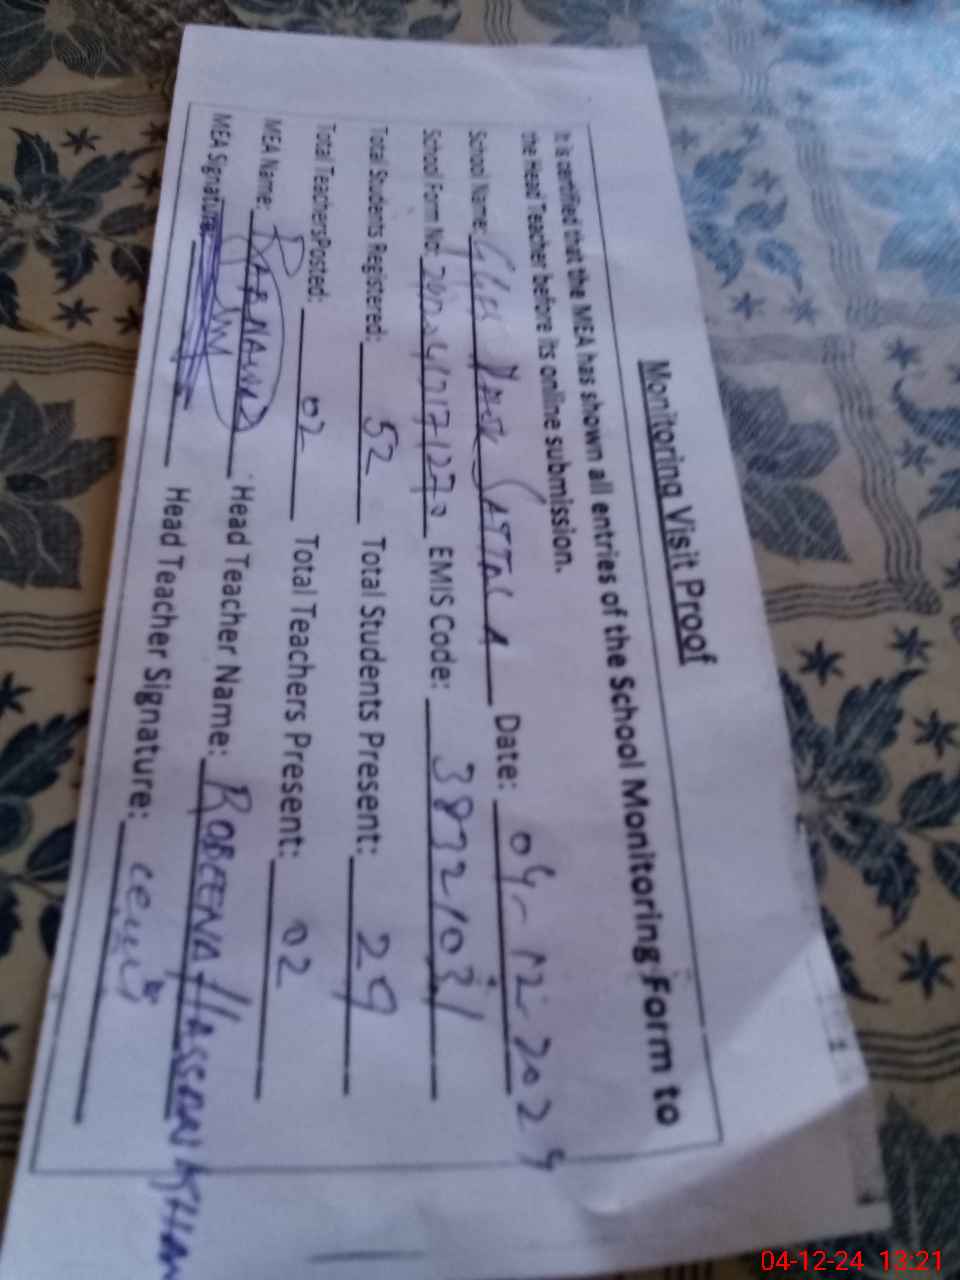 Monitoring Visit Proof
It is certified that the MEA has shown all entries of the School Monitoring Form to
the Head Teacher before its online submission.
School Name: Date: 04-12-2024
School Form No: EMIS Code: 38721031
Total Students Registered: 52 Total Students Present: 29
Total TeachersPosted: 02 Total Teachers Present: 02
MEA Name: Head Teacher Name: ROBEENA HASSAN KHAN
MEA Signature: Head Teacher Signature:
04-12-24 13:21